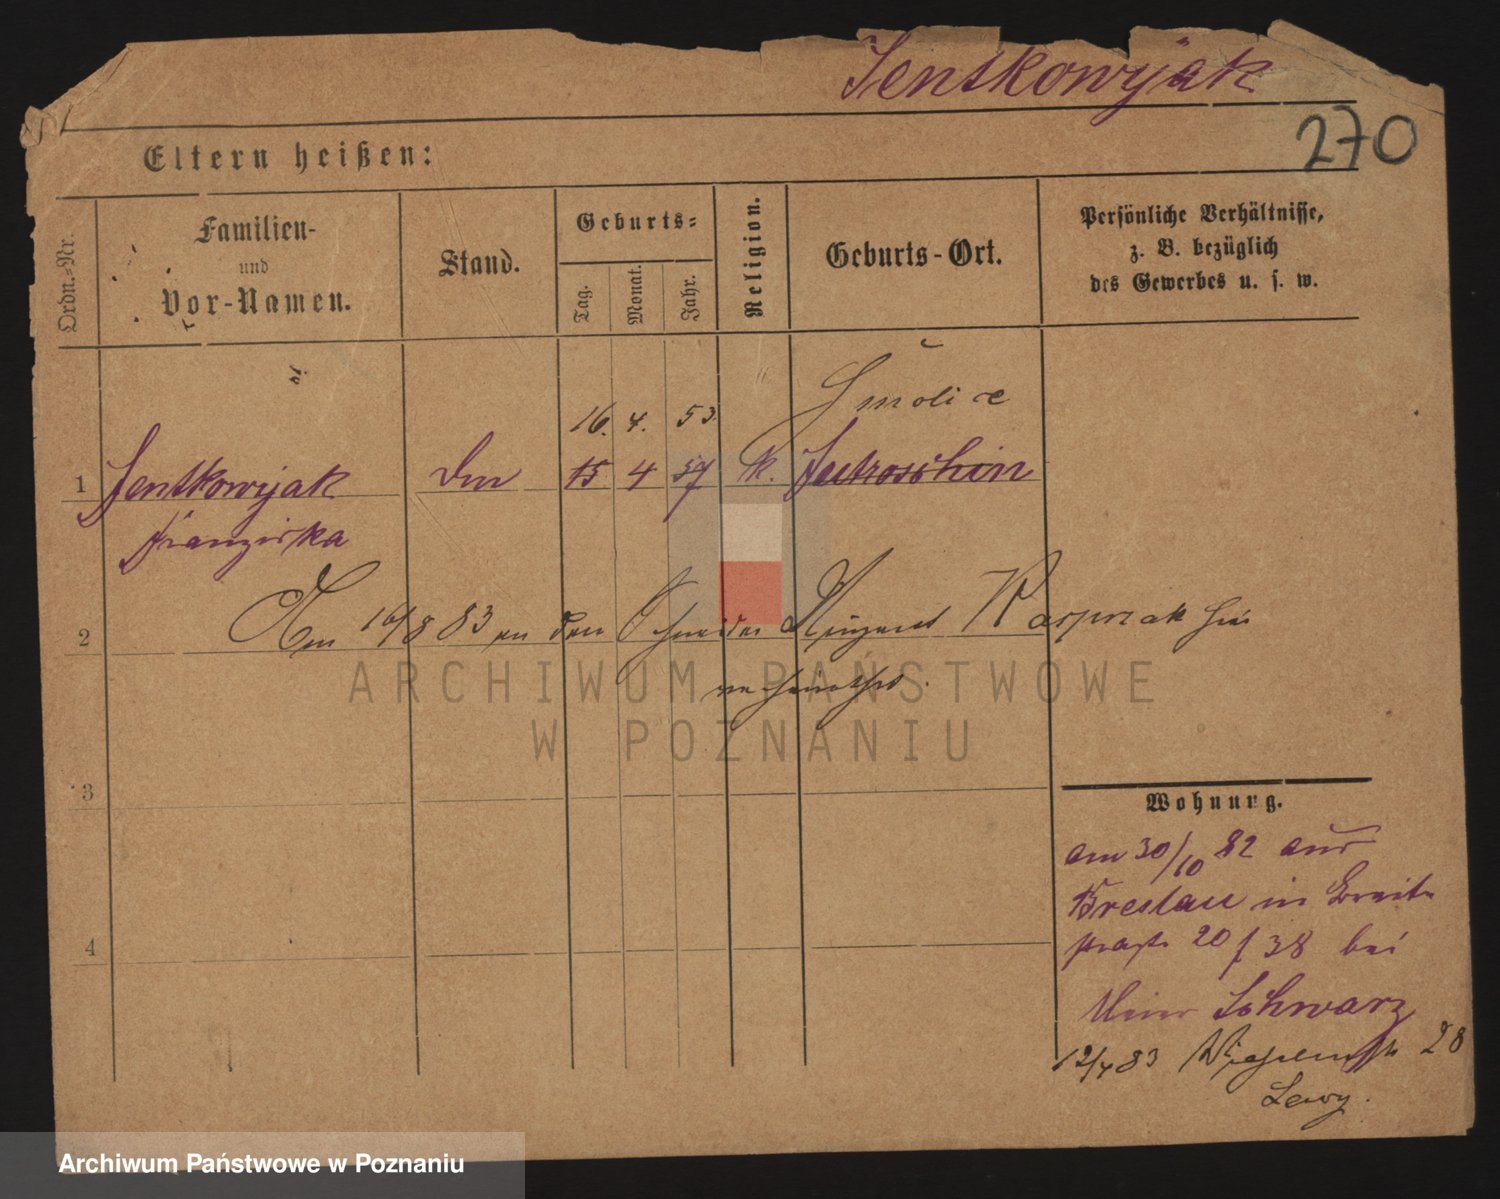 Jentkowijak
270
Eltern heißen:
Ordn.-Nr.
Familien-
und
Vor-Namen.
Stand.
Geburts-
Tag.
Monat.
Jahr.
Religion.
Geburts-Ort.
Persönliche Verhältnisse,
z. B. bezüglich
des Gewerbes u. s. w.
16. 4. 53. Smolice
1 Jentkowijak 15 4 57 k. Jutroschin
Franziska
2 Am 16/8 83 an den Schneider Kasprzak hier
verheirathet.
3
4
Wohnung.
am 30/10 82 aus
Breslau in Breite-
straße 20 / 38 bei
Schwarz
12/4 83 28
Lewy.
ARCHIWUM PAŃSTWOWE
W POZNANIU
Archiwum Państwowe w Poznaniu